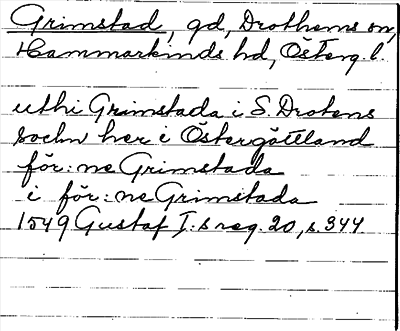 Grimstad, gd, Drothems sn,
Hammarkinds hd, Österg. l.
uthi Grimstada i S. Drotens
Sochn her i Östergöttland
för: ne Grimstada
i för: ne Grimstada
1549 Gustaf I:s reg. 20, s. 344